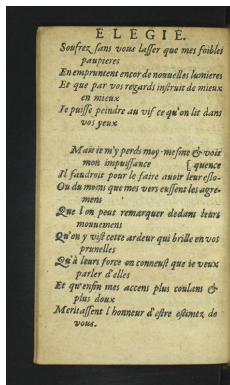 ELEGIE.
Soufrez sans vous lasser que mes foibles
paupieres
En empruntent encor de nouuelles lumieres
Et que par vos regards instruit de mieux
en mieux
Ie puisse peindre au vif ce qu'on lit dans
vos yeux
Mais ie m'y perds moy-mesme & voir
mon impuissance [quence
Il faudroit pour le faire auoir leur eslo-
Ou du moins que mes vers eussent les agre-
mens
Que l'on peut remarquer dedans leurs
mouuemens
Qu'on y vist cette ardeur qui brille en vos
prunelles
Qu'à leurs force on conneust que ie veux
parler d'elles
Et qu'enfin mes accens plus coulans &
plus doux
Meritassent l'honneur d'estre estimez de
vous.